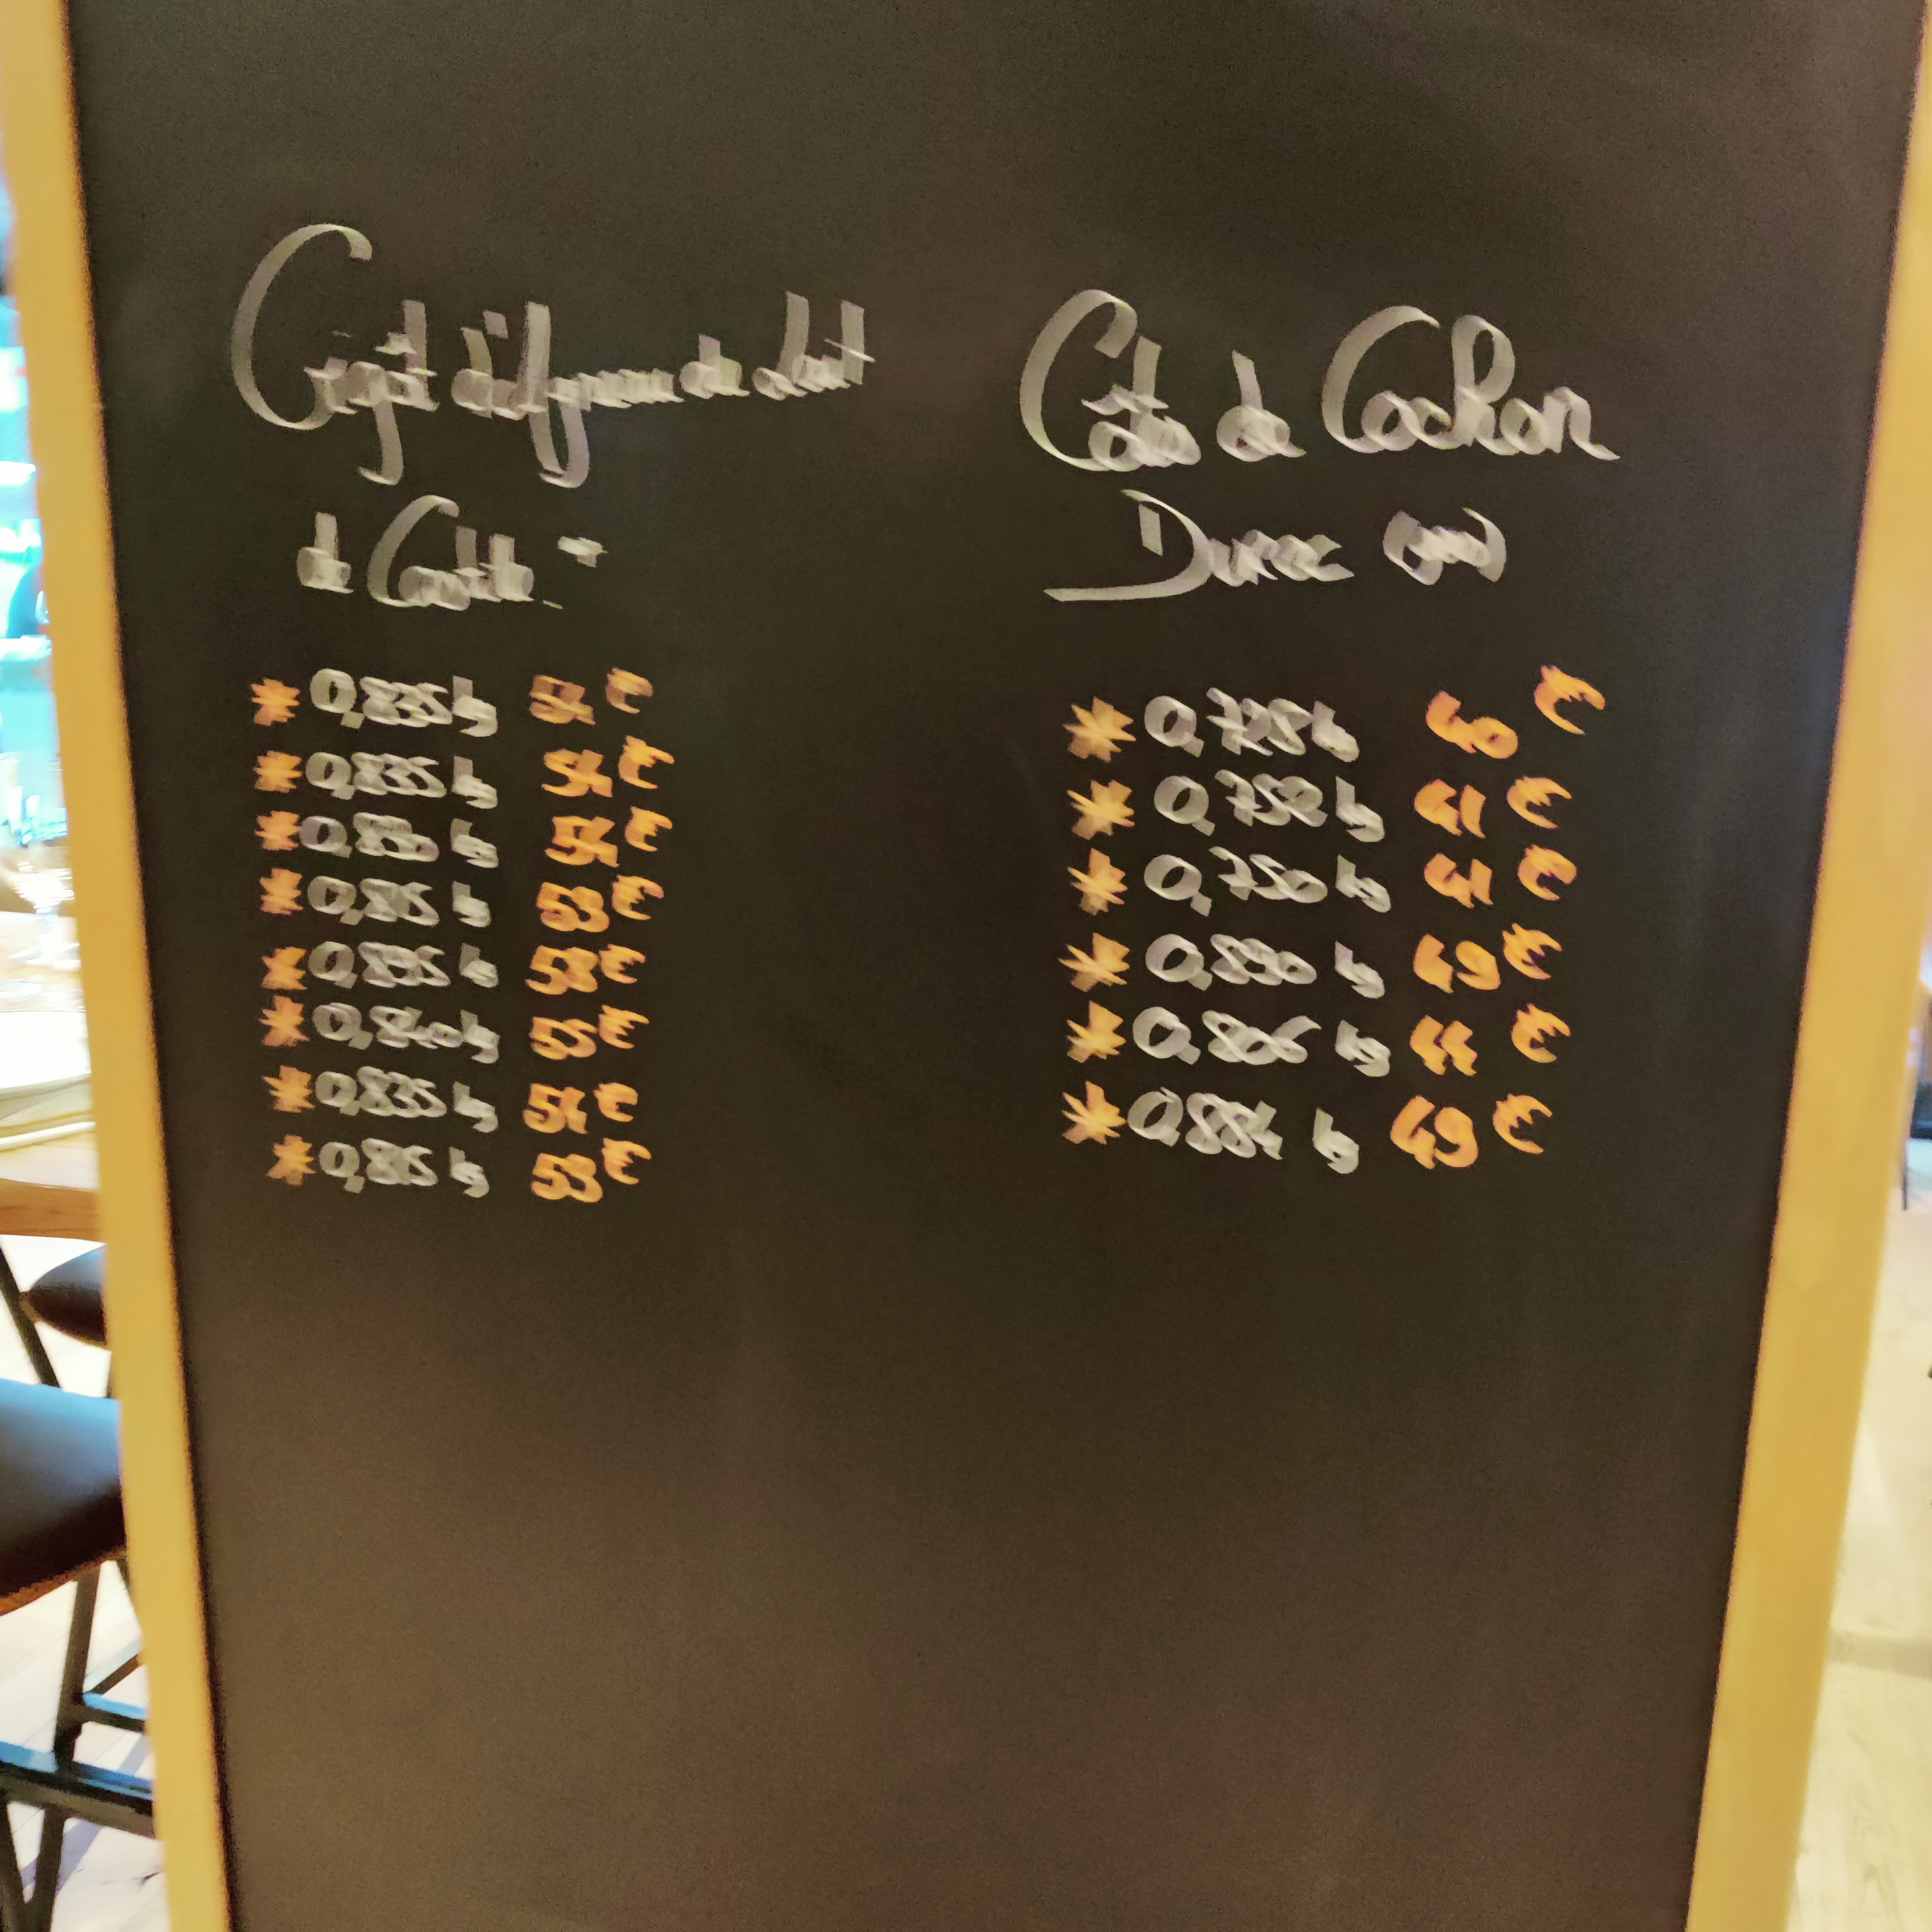 Gigot d'Agneau de Lait
de Castille
* 0,835 kg 54 €
* 0,835 kg 54 €
* 0,830 kg 54 €
* 0,815 kg 53 €
* kg 53 €
* 0,840 kg 55 €
* 0,835 kg 54 €
* 0,815 kg 53 €
Côte de Cochon
Duroc
* 0,725 kg 40 €
* 0,752 kg 41 €
* 0,750 kg 41 €
* 0,890 kg 49 €
* 0,806 kg 44 €
* 0,884 kg 49 €